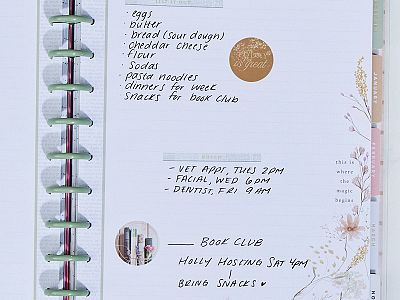 · eggs
· butter
· bread (sour dough)
· cheddar cheese
· flour
· sodas
· pasta noodles
dinners for week
snacks for book club
is great
- VET APPS, TUES 2PM
- FACIAL, WED 6PM
- DENTIST, FRI 9AM
this is
where
the
magic
begins
BOOK CLUB
HOLLY HOSTING SAT 4PM
BRING SNACKS ♥